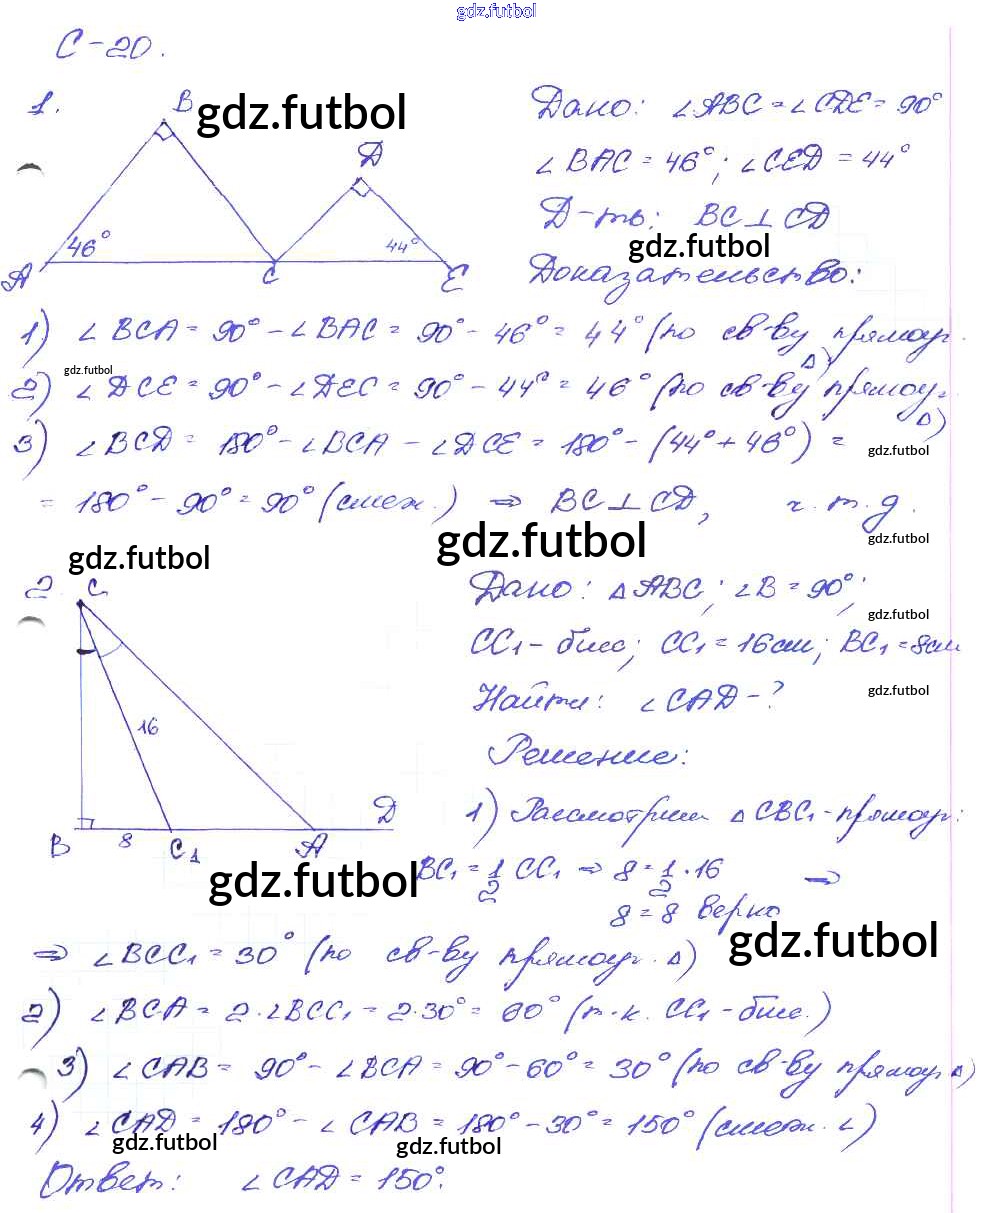 gdz.futbol
С-20.
1.
B
gdz.futbol
Д
46°
44°
A
C
E
Дано: ∠ABC = ∠CDE = 90°
∠BAC = 46°; ∠CED = 44°
Д-ть: BC ⊥ CD
gdz.futbol
Доказательство:
1) ∠BCA = 90° - ∠BAC = 90° - 46° = 44° (по св-ву прямоуг. Δ)
gdz.futbol
2) ∠DCE = 90° - ∠DEC = 90° - 44° = 46° (по св-ву прямоуг. Δ)
3) ∠BCD = 180° - ∠BCA - ∠DCE = 180° - (44° + 46°) =
gdz.futbol
= 180° - 90° = 90° (смеж.) ⇒ BC ⊥ CD, ч.т.д.
gdz.futbol
gdz.futbol
gdz.futbol
2.
C
16
B
8
C1
A
D
Дано: Δ ABC; ∠B = 90°;
gdz.futbol
CC1 - бисс; CC1 = 16см; BC1 = 8см
Найти: ∠CAD - ?
gdz.futbol
Решение:
1) Рассмотрим Δ CBC1 - прямоуг:
gdz.futbol
BC1 = 1/2 CC1 ⇒ 8 = 1/2 · 16 ⇒
8 = 8 верно
gdz.futbol
⇒ ∠BCC1 = 30° (по св-ву прямоуг. Δ)
2) ∠BCA = 2·∠BCC1 = 2·30° = 60° (т.к. CC1 - бисс.)
3) ∠CAB = 90° - ∠BCA = 90° - 60° = 30° (по св-ву прямоуг. Δ)
4) ∠CAD = 180° - ∠CAB = 180° - 30° = 150° (смеж. ∠)
gdz.futbol
gdz.futbol
Ответ: ∠CAD = 150°.